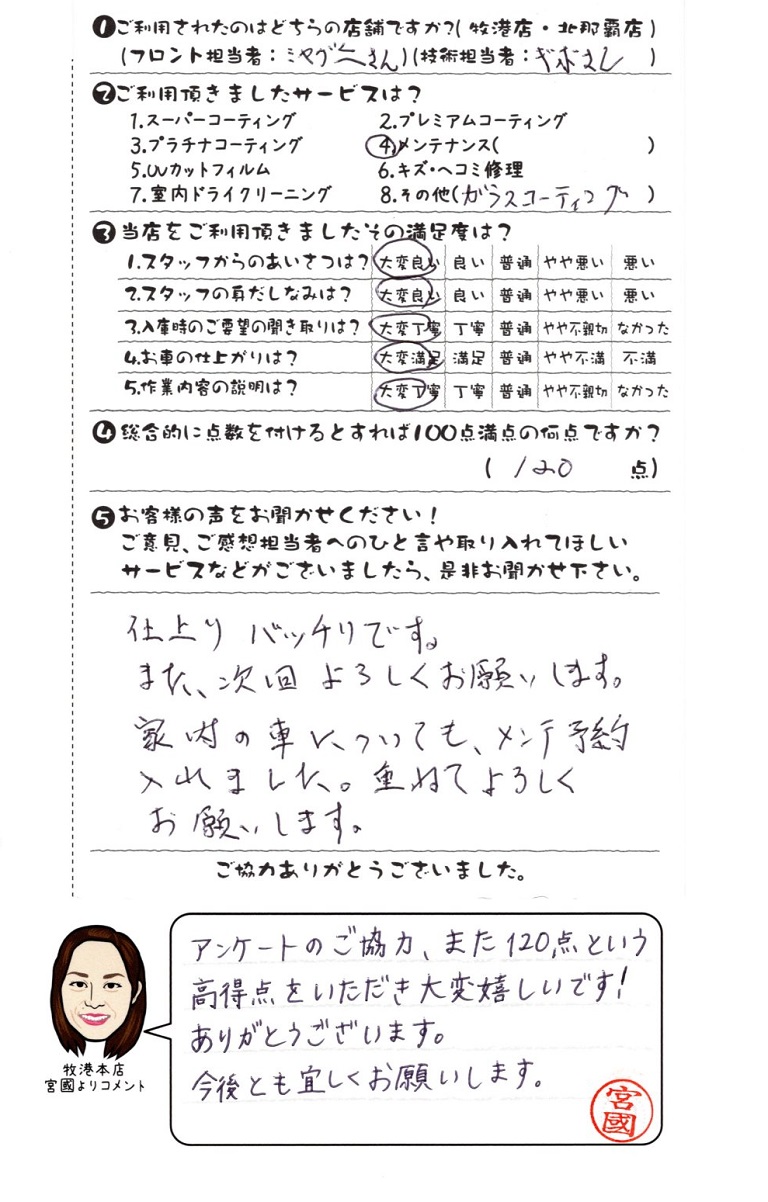 ❶ご利用されたのはどちらの店舗ですか?(牧港店・北那覇店)
(フロント担当者:ミヤグニさん)(技術担当者:ぎぼさん)
❷ご利用頂きましたサービスは?
1.スーパーコーティング 2.プレミアムコーティング
3.プラチナコーティング 4.メンテナンス( )
5.UVカットフィルム 6.キズ・ヘコミ修理
7.室内ドライクリーニング 8.その他(ガラスコーティング)
❸当店をご利用頂きましたその満足度は?
1.スタッフからのあいさつは? 大変良い 良い 普通 やや悪い 悪い
2.スタッフの身だしなみは? 大変良い 良い 普通 やや悪い 悪い
3.入庫時のご要望の聞き取りは? 大変丁寧 丁寧 普通 やや不親切 なかった
4.お車の仕上がりは? 大変満足 満足 普通 やや不満 不満
5.作業内容の説明は? 大変丁寧 丁寧 普通 やや不親切 なかった
❹総合的に点数を付けるとすれば100点満点の何点ですか?
(120 点)
❺お客様の声をお聞かせください!
ご意見、ご感想担当者へのひと言や取り入れてほしい
サービスなどがございましたら、是非お聞かせ下さい。
仕上り バッチリです。
また、次回 よろしくお願いします。
家内の車についても、メンテ予約
入れました。重ねてよろしく
お願いします。
ご協力ありがとうございました。
アンケートのご協力、また120点という
高得点をいただき大変嬉しいです!
ありがとうございます。
今後とも宜しくお願いします。
宮國
牧港本店
宮國よりコメント